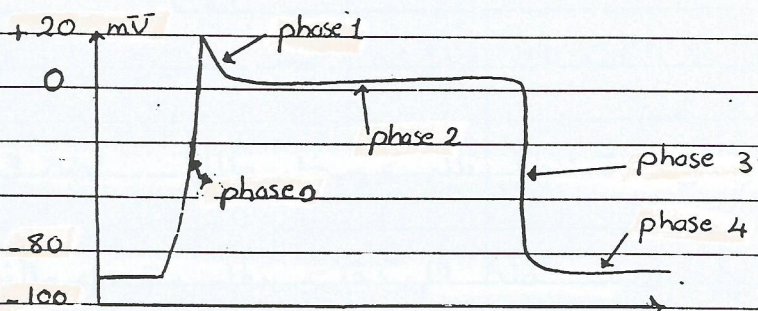 + 20 mV phase 1
0
phase 2
phase 3
phase 0
phase 4
- 80
- 100